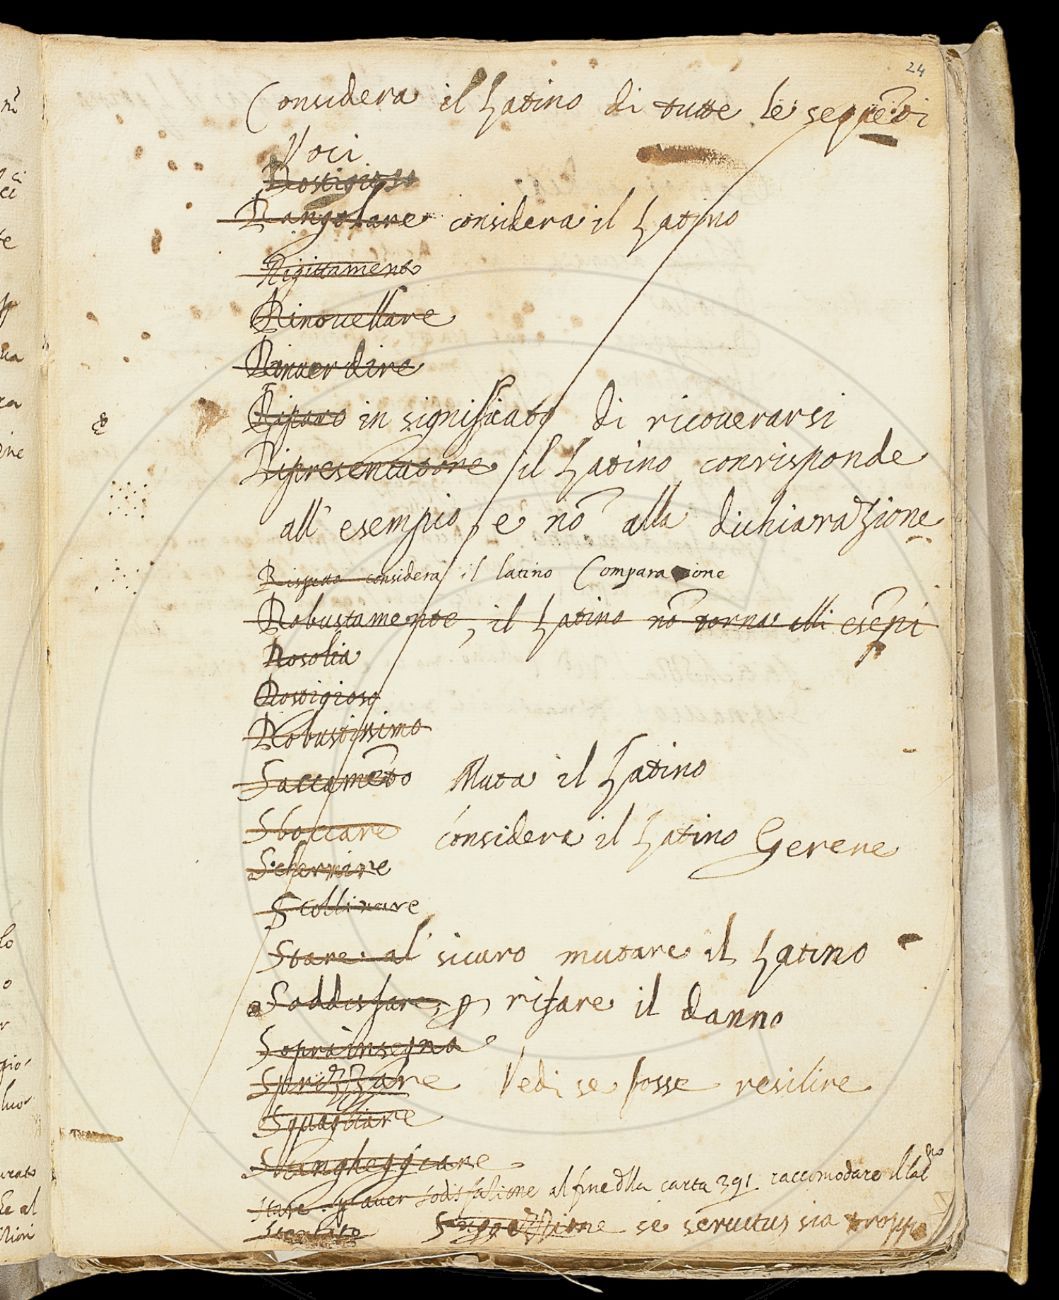 24
Considera il Latino di tutte le seguẽti
Voci
Rostigioso
Rangolare considera il Latino
Rigittamento
Rinouellare
Rinuerdire
Riparo in significato di ricouerarsi
Ripresentatore il Latino corrisponde
all' esempio, e nõ alla dichiarazione
considera il latino Comparazione
Robustamente, il Latino nõ torna alli esẽpi
Rosolia
Rostigioso
Robustissimo
Saccomẽto Muta il Latino
Sboccare considera il Latino Gerere
Schermire
Scollinare
Stare al sicuro mutare il Latino
Soddisfare, ꝑ rifare il danno
Soprainsegna
Sprizzare Vedi se fosse resilire
Squagliare
Stangheggiare
auer sodisfazione al fine dlla carta 391 raccomodare il
Suggezzione se seruitus sia troppo